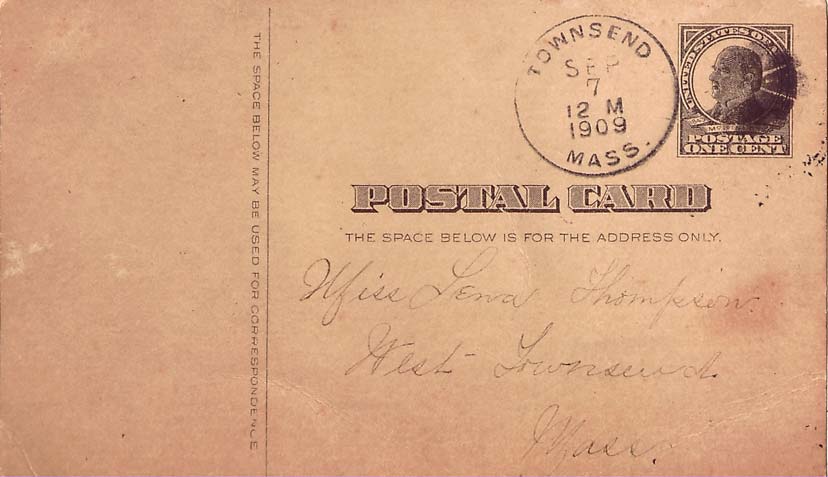 THE SPACE BELOW MAY BE USED FOR CORRESPONDENCE
TOWNSEND
SEP
7
12 M
1909
MASS.
UNITED STATES OF
POSTAGE
ONE CENT
POSTAL CARD
THE SPACE BELOW IS FOR THE ADDRESS ONLY.
Miss Lena Thompson.
West Townsend.
Mass.